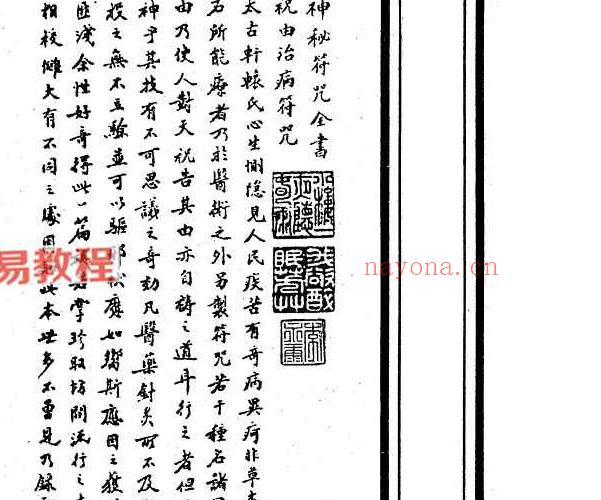 神秘符咒全書
祝由治病符咒
太古軒轅氏心生惻隱見人民疾苦有奇病異疴非草木
石所能療者乃於醫術之外另製符咒若干種名諸
由乃使人對天祝告其由亦自禱之道耳行之者但
神乎其技有不可思議之奇効凡醫藥針灸所不及
投之無不立驗並可以驅邪 如響斯應因之獲
匪淺余性好奇得此一篇 掌珍取坊間流行之
相校讎大有不同之處因 此本世多不曾見乃錄
易教程
nayona.cn